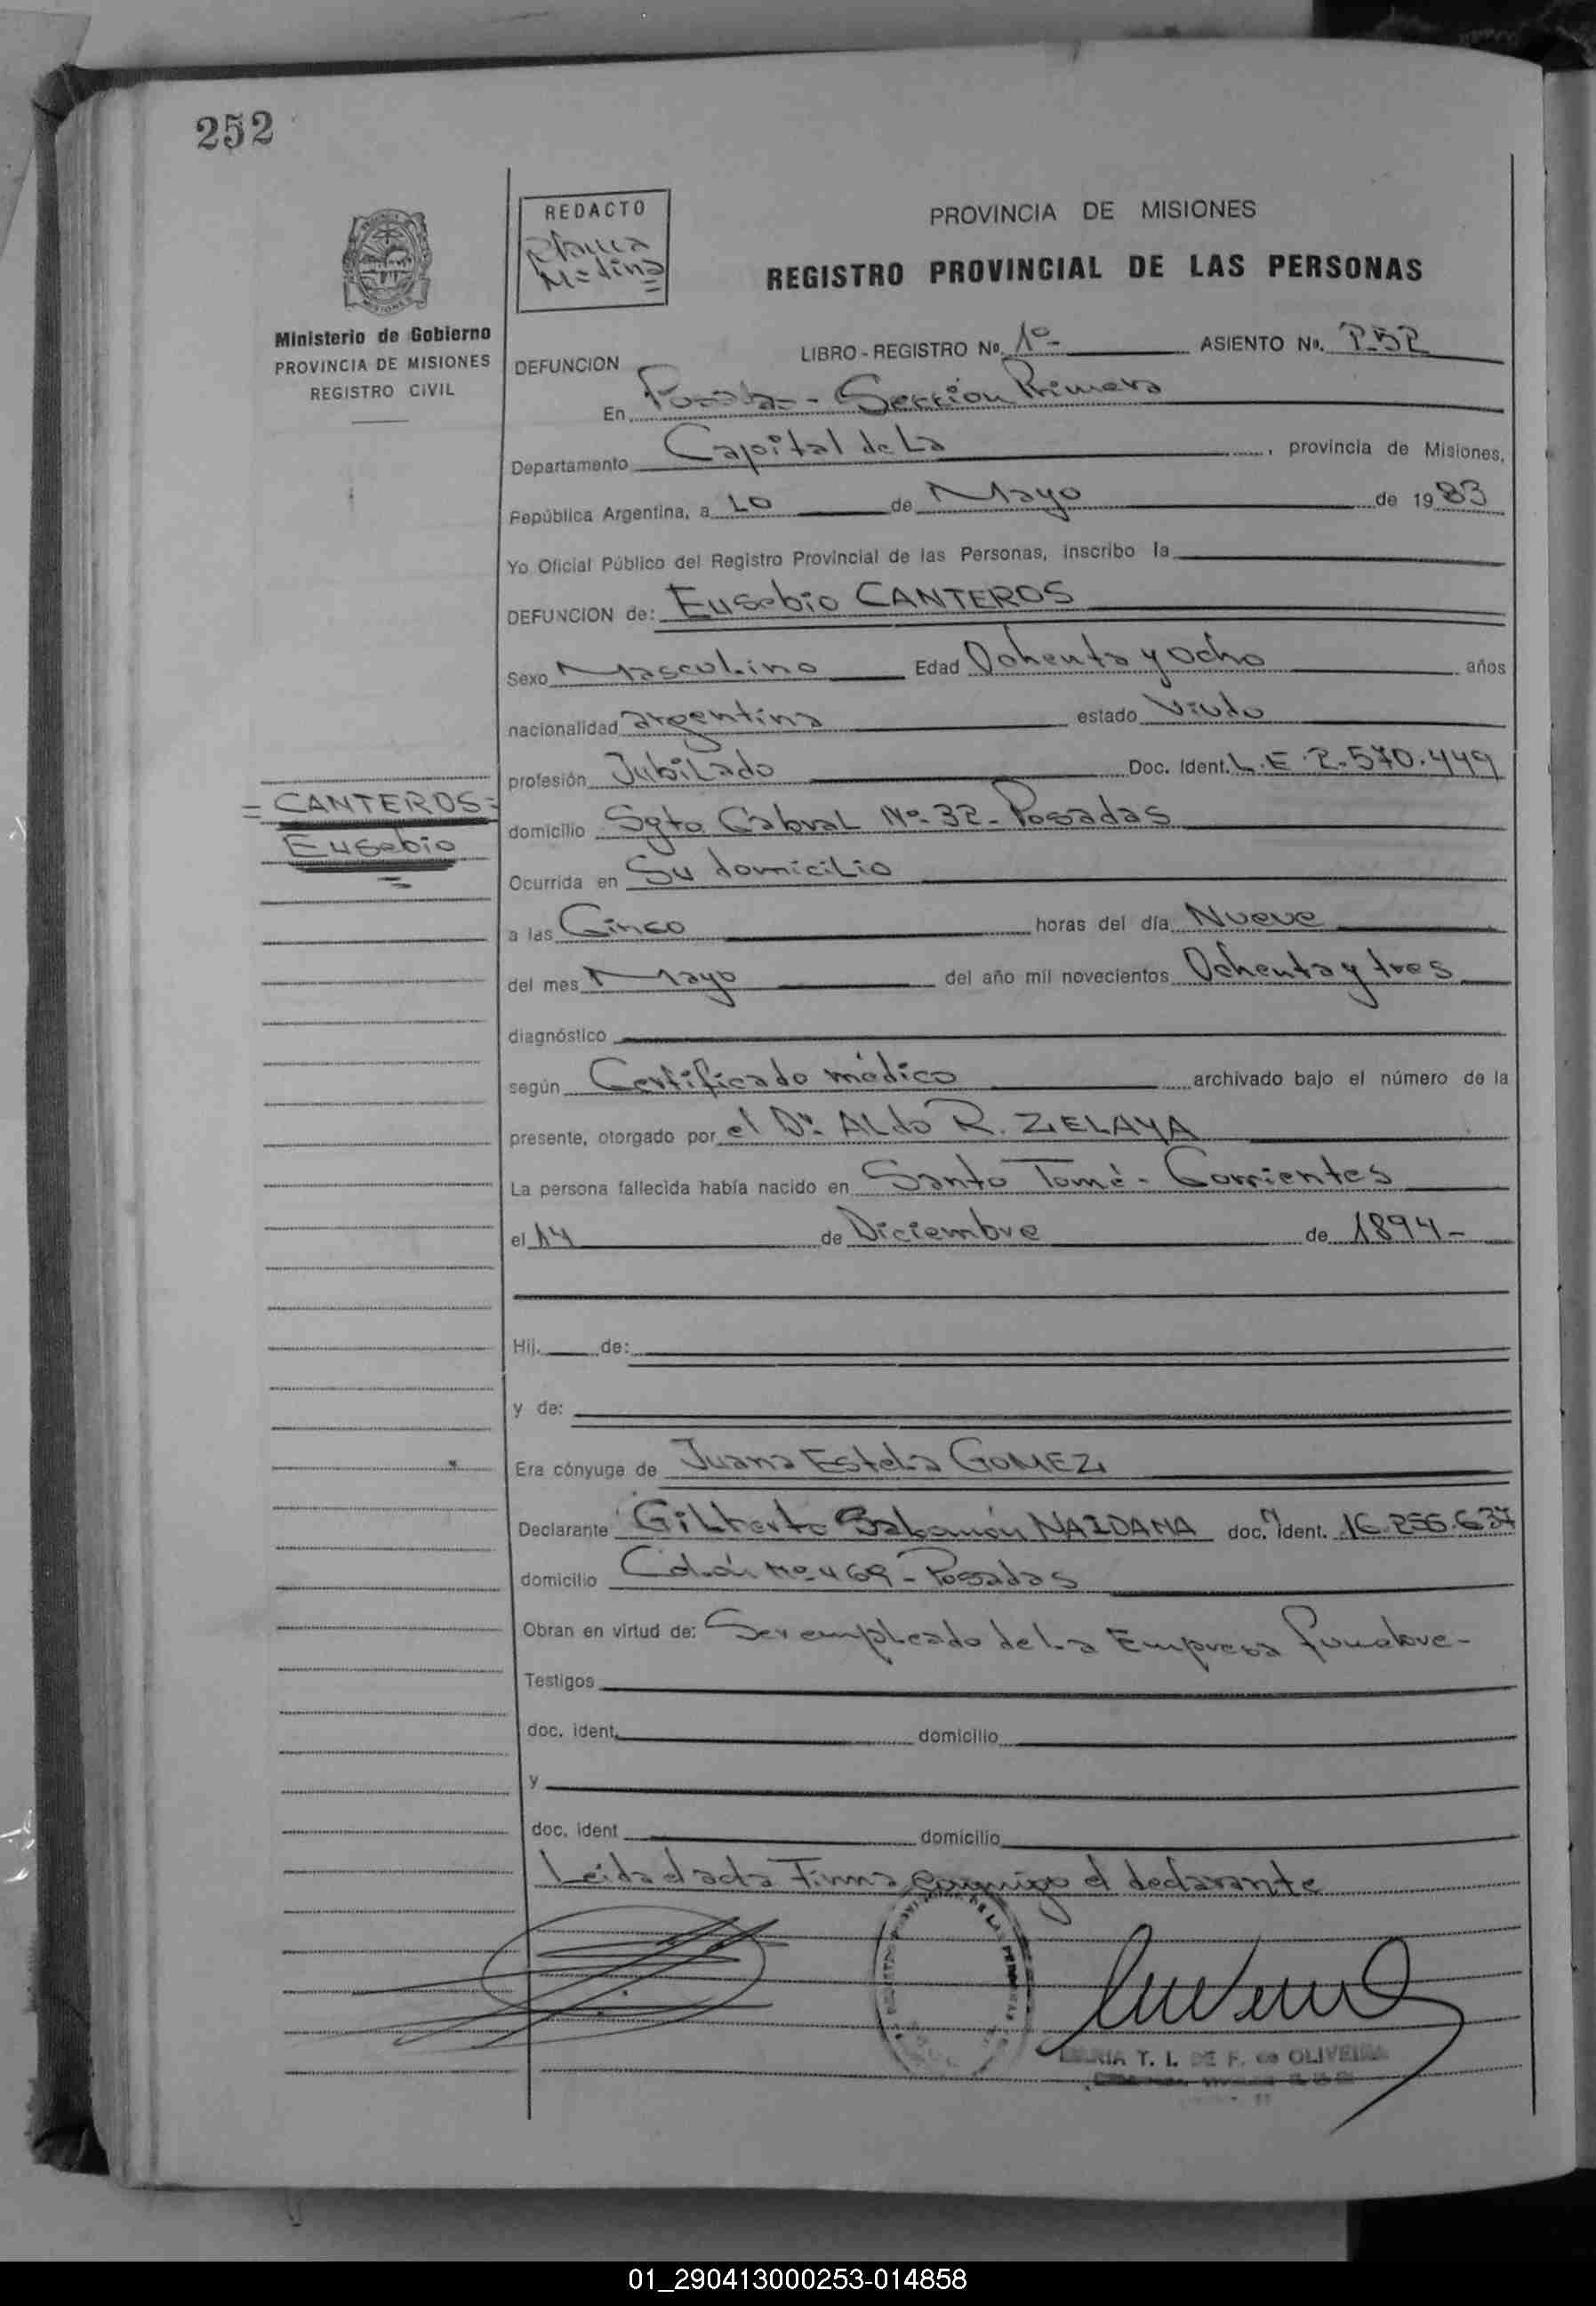 252
REDACTO
Medina
PROVINCIA DE MISIONES
REGISTRO PROVINCIAL DE LAS PERSONAS
Ministerio de Gobierno
PROVINCIA DE MISIONES
REGISTRO CIVIL
LIBRO - REGISTRO Nº. 1º- ASIENTO Nº. 252
DEFUNCION
En Posadas - Sección Primera
Departamento Capital de La , provincia de Misiones,
República Argentina, a 10 de Mayo de 1983
Yo Oficial Público del Registro Provincial de las Personas, inscribo la
DEFUNCION de: Eusebio CANTEROS
Sexo Masculino Edad Ochenta y Ocho años
nacionalidad argentina estado Viudo
profesión Jubilado Doc. Ident. L.E. 2.570.449
= CANTEROS =
Eusebio
domicilio Sgto Cabral Nº- 32 - Posadas
Ocurrida en Su domicilio
a las Cinco horas del día Nueve
del mes Mayo del año mil novecientos Ochenta y tres
diagnóstico
según Certificado médico archivado bajo el número de la
presente, otorgado por el Dr. Aldo R. ZELAYA
La persona fallecida había nacido en Santo Tomé - Corrientes
el 14 de Diciembre de 1894 -
Hij. de:
y de:
Era cónyuge de Juana Estela GOMEZ
Declarante Gilberto Salomón NAIDANA doc. ident. 16.256.637
domicilio Colón Nº- 469 - Posadas
Obran en virtud de: Ser empleado de La Empresa funebre -
Testigos
doc. ident. domicilio
y
doc. ident domicilio
Leida el acta Firma conmigo el declarante
MARIA T. I. DE F. de OLIVEIRA
01_290413000253-014858